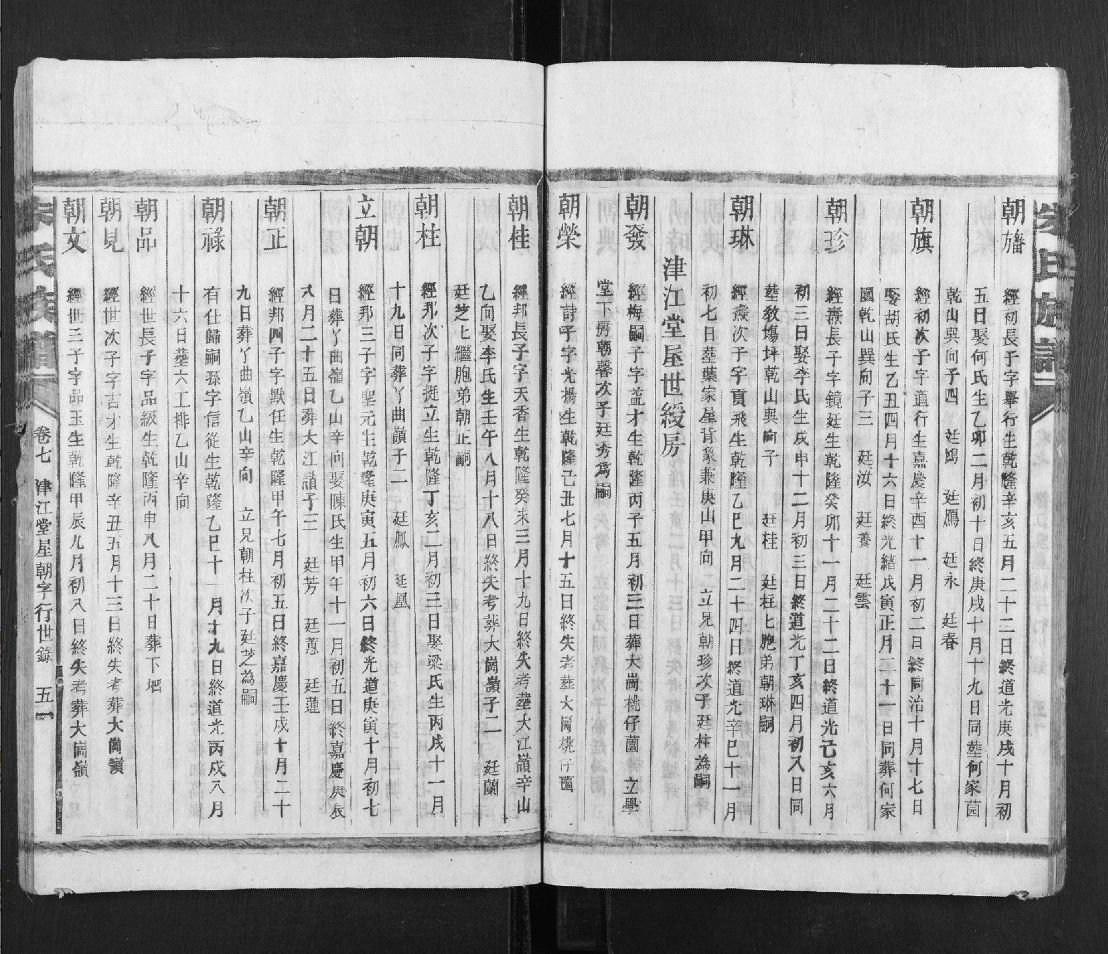 朝旛
經初長子字舉行生乾隆辛亥五月二十三日終道光庚戌十月初
五日娶何氏生乙卯二月初十日終庚戌十月十九日同塟何家園
乾山巽向子四 廷鴻 廷鴈 廷永 廷春
朝旗
經初次子字道行生嘉慶辛酉十一月初二日終同治十月十七日
娶胡氏生乙丑四月十六日終光緒戊寅正月二十一日同葬何家
園乾山巽向子三 廷汝 廷養 廷雲
朝珍
經濤長子字鏡廷生乾隆癸卯十一月二十二日終道光己亥六月
初三日娶李氏生戊申十二月初三日終道光丁亥四月初八日同
塟敎塲坪乾山巽向子 廷桂 廷柱匕胞弟朝琳嗣
朝琳
經濤次子字貢飛生乾隆乙巳九月二十四日終道光辛巳十一月
初七日塟葉家屋背象乘庚山甲向 立兄朝珍次子廷柱為嗣
津江堂屋世綬房
朝發
經梅嗣子字益才生乾隆丙子五月初三日葬大崗桃仔園 立學
堂下房朝馨次子廷秀為嗣
朝榮
經詩子字光揚生乾隆己丑七月十五日終失考塟大崗桃仔園
朝桂
經邦長子字天香生乾隆癸未三月十九日終失考塟大江嶺辛山
乙向娶李氏生壬午八月十八日終失考葬大崗嶺子二 廷蘭
廷芝上繼胞弟朝正嗣
朝柱
經邦次子字挺立生乾隆丁亥二月初三日娶梁氏生丙戌十一月
十九日同葬丫曲嶺子二 廷鳳 廷凰
立朝
經邦三子字罡元生乾隆庚寅五月初六日終光道庚寅十月初七
日葬丫曲嶺乙山辛向娶陳氏生甲午十一月初五日終嘉慶庚辰
八月二十五日葬大江嶺子三 廷芳 廷蕙 廷蓮
朝正
經邦四子字獸任生乾隆甲午七月初五日終嘉慶壬戌十月二十
九日葬丫曲嶺乙山辛向 立兄朝桂次子廷芝為嗣
朝祿
有仕歸嗣孫字信從生乾隆乙巳十一月十九日終道光丙戌八月
十六日塟六工排乙山辛向
朝品
經世長子字品級生乾隆丙申八月二十日葬下壩
朝見
經世次子字吉才生乾隆辛丑五月十三日終失考葬大崗嶺
朝文
經世三子字品玉生乾隆甲辰九月初八日終失考葬大崗嶺
卷七 津江堂屋朝字行世錄 五一